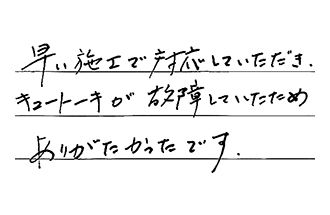 早い施工で対応していただき、
キュートーキが故障していたため
ありがたかったです.